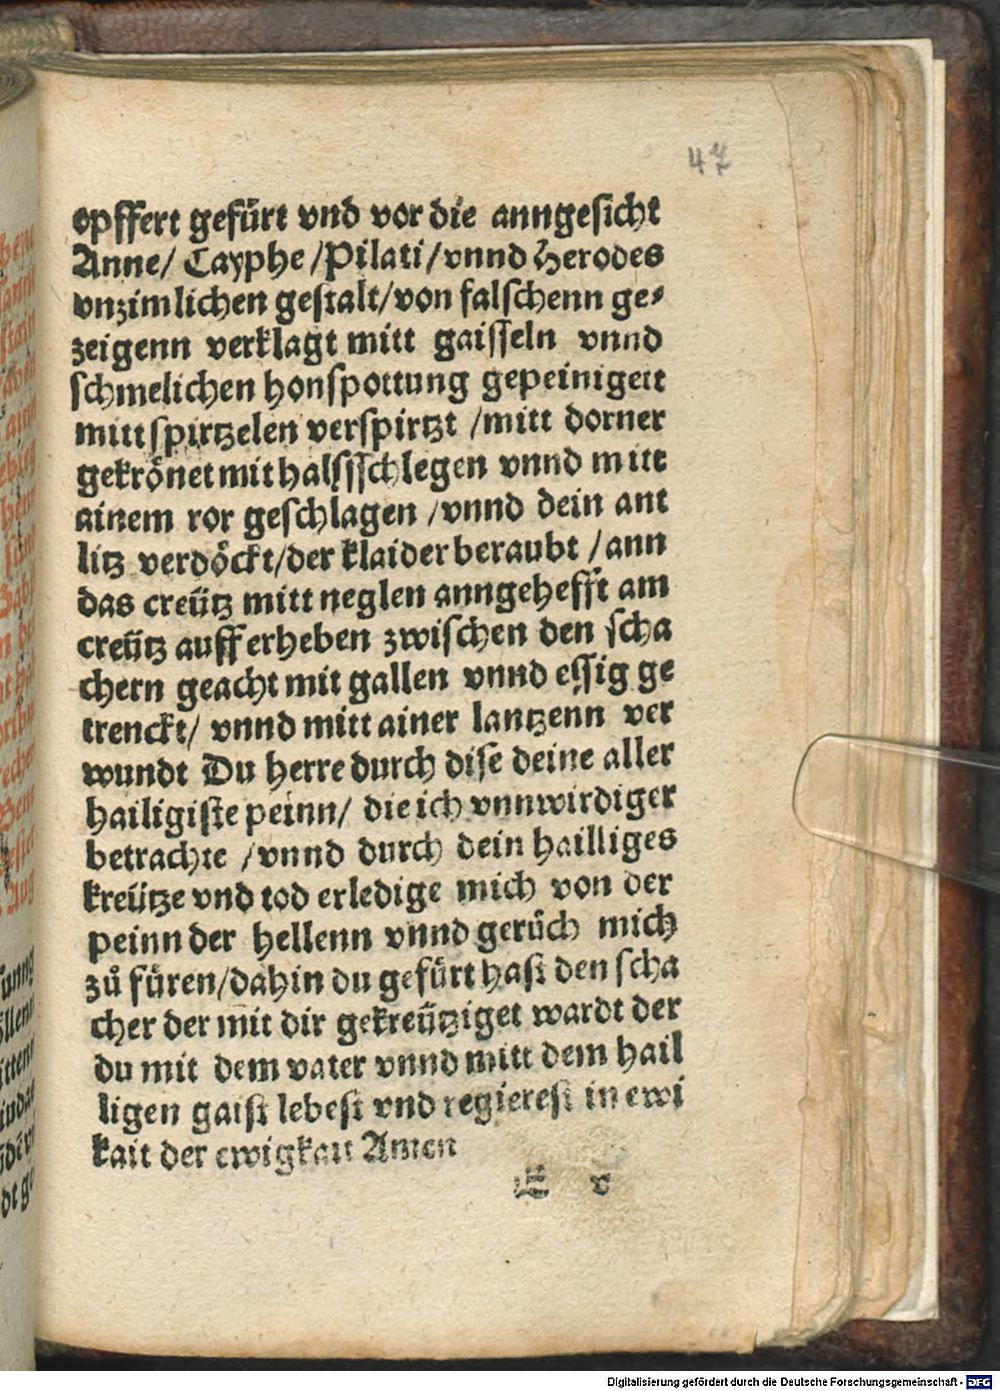 47
opffert gefürt vnd vor die anngesicht
Anne/ Cayphe /Pilati/vnnd Herodes
vnzimlichen gestalt/von falschenn ge⸗
zeigenn verklagt mitt gaisseln vnnd
schmelichen honspottung gepeinigett
mitt spirtzelen verspirtzt /mitt dorner
gekrönet mit halssschlegen vnnd mitt
ainem ror geschlagen /vnnd dein ant
litz verdöckt/der klaider beraubt /ann
das creütz mitt neglen anngehefft am
creütz auff erheben zwischen den scha
chern geacht mit gallen vnnd essig ge
trenckt/ vnnd mitt ainer lantzenn ver
wundt Du herre durch dise deine aller
hailigiste peinn/ die ich vnnwirdiger
betrachte /vnnd durch dein hailliges
kreütze vnd tod erledige mich von der
peinn der hellenn vnnd gerůch mich
zů füren/dahin du gefürt hast den scha
cher der mit dir gekreütziget wardt der
du mit dem vater vnnd mitt dem hail
ligen gaist lebest vnd regierest in ewi
kait der ewigkait Amen
E v
Digitalisierung gefördert durch die Deutsche Forschungsgemeinschaft - DFG